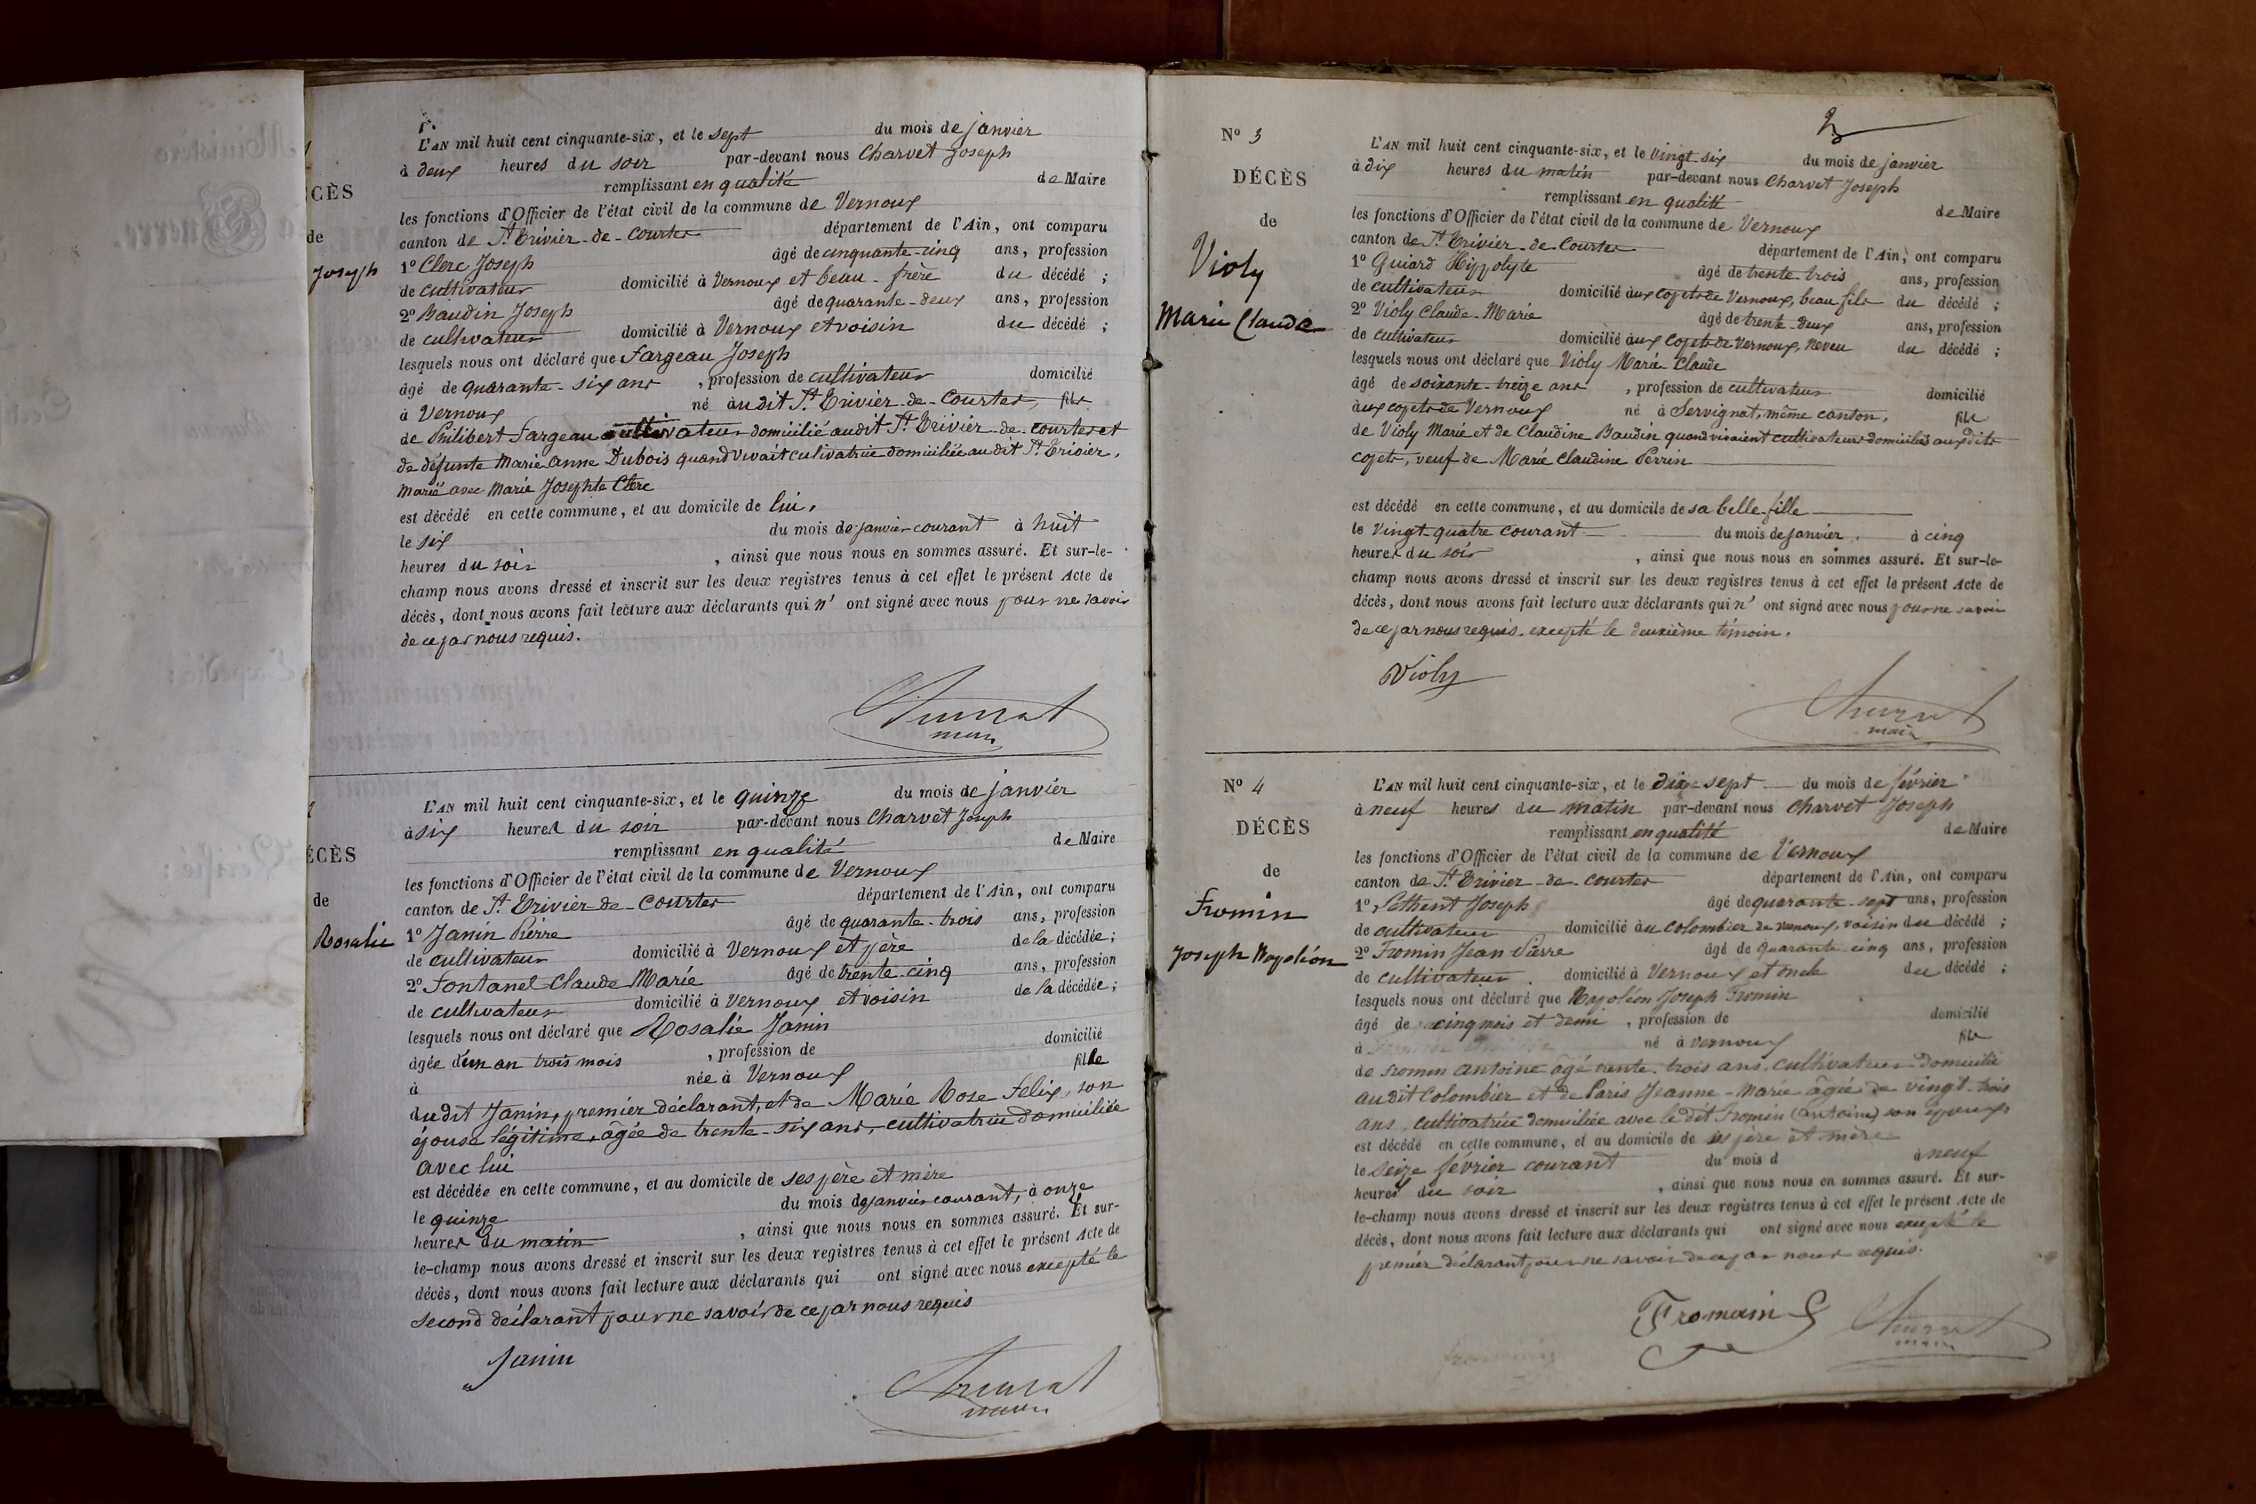 L'AN mil huit cent cinquante-six, et le sept du mois de janvier
à deux heures du soir par-devant nous Charvet Joseph
remplissant en qualité de Maire
les fonctions d'Officier de l'état civil de la commune de Vernoux
canton de St Trivier-de-Courtes département de l'Ain, ont comparu
1º Clerc Joseph âgé de cinquante-cinq ans, profession
de cultivateur domicilié à Vernoux et beau-frère du décédé ;
2º Baudin Joseph âgé de quarante-deux ans, profession
de cultivateur domicilié à Vernoux et voisin du décédé ;
lesquels nous ont déclaré que Fargeau Joseph
âgé de quarante-six ans, profession de cultivateur domicilié
à Vernoux né audit St Trivier-de-Courtes, fils
de Philibert Fargeau cultivateur domicilié audit St Trivier-de-courtes et
de défunte Marie anne Dubois quand vivait cultivatrice domiciliée audit St Trivier,
marié avec Marie Josephte Clerc
est décédé en cette commune, et au domicile de lui,
le six du mois de janvier courant à huit
heures du soir, ainsi que nous nous en sommes assuré. Et sur-le-
champ nous avons dressé et inscrit sur les deux registres tenus à cet effet le présent Acte de
décès, dont nous avons fait lecture aux déclarants qui n' ont signé avec nous pour ne savoir
de ce par nous requis.
Charvet
maire
CÈS
de
Joseph
L'AN mil huit cent cinquante-six, et le quinze du mois de janvier
à six heures du soir par-devant nous Charvet Joseph
remplissant en qualité de Maire
les fonctions d'Officier de l'état civil de la commune de Vernoux
canton de St Trivier-de-Courtes département de l'Ain, ont comparu
1º Janin Pierre âgé de quarante-trois ans, profession
de cultivateur domicilié à Vernoux et père de la décédée ;
2º Fontanel Claude Marie âgé de trente-cinq ans, profession
de cultivateur domicilié à Vernoux et voisin de la décédée ;
lesquels nous ont déclaré que Rosalie Janin
âgée d'un an trois mois, profession de domicilié
à née à Vernoux fille
dudit Janin, premier déclarant, et de Marie Rose Felix, son
épouse légitime, âgée de trente-six ans, cultivatrice domiciliée
avec lui
est décédée en cette commune, et au domicile de ses père et mère
le quinze du mois de janvier courant, à onze
heures du matin, ainsi que nous nous en sommes assuré. Et sur-
le-champ nous avons dressé et inscrit sur les deux registres tenus à cet effet le présent Acte de
décès, dont nous avons fait lecture aux déclarants qui ont signé avec nous excepté le
second déclarant pour ne savoir de ce par nous requis
Janin
Charvet
maire
ÉCÈS
de
Rosalie
2
Nº 3
DÉCÈS
de
Violy
Marie Claude
L'AN mil huit cent cinquante-six, et le vingt-six du mois de janvier
à dix heures du matin par-devant nous Charvet Joseph
remplissant en qualité de Maire
les fonctions d'Officier de l'état civil de la commune de Vernoux
canton de St Trivier-de-Courtes département de l'Ain, ont comparu
1º Guiard Hippolyte âgé de trente-trois ans, profession
de cultivateur domicilié aux cojets de Vernoux, beau fils du décédé ;
2º Violy Claude-Marie âgé de trente-deux ans, profession
de cultivateur domicilié aux Cojets de Vernoux, neveu du décédé ;
lesquels nous ont déclaré que Violy Marie Claude
âgé de soixante-treize ans, profession de cultivateur domicilié
aux cojets de Vernoux né à Servignat, même canton, fils
de Violy Marie et de Claudine Baudin quand vivaient cultivateurs domiciliés auxdits
cojets, veuf de Marie Claudine Perrin
est décédé en cette commune, et au domicile de sa belle-fille
le vingt-quatre courant du mois de janvier à cinq
heures du soir, ainsi que nous nous en sommes assuré. Et sur-le-
champ nous avons dressé et inscrit sur les deux registres tenus à cet effet le présent Acte de
décès, dont nous avons fait lecture aux déclarants qui n' ont signé avec nous pour ne savoir
de ce par nous requis. excepté le deuxième témoin.
Violy
Charvet
maire
Nº 4
DÉCÈS
de
Fromin
Joseph Napoléon
L'AN mil huit cent cinquante-six, et le dix-sept du mois de février
à neuf heures du matin par-devant nous Charvet Joseph
remplissant en qualité de Maire
les fonctions d'Officier de l'état civil de la commune de Vernoux
canton de St Trivier-de-Courtes département de l'Ain, ont comparu
1º Joseph âgé de quarante-sept ans, profession
de cultivateur domicilié au Colombier de vernoux, voisin du décédé ;
2º Fromin Jean Pierre âgé de quarante cinq ans, profession
de cultivateur domicilié à Vernoux et oncle du décédé ;
lesquels nous ont déclaré que Napoléon Joseph Fromin
âgé de cinq mois et demi, profession de domicilié
à né à vernoux fils
de Fromin antoine âgé trente-trois ans, cultivateur domicilié
audit Colombier et de Paris Jeanne-Marie âgée de vingt-trois
ans, cultivatrice domiciliée avec ledit Fromin (antoine) son époux,
est décédé en cette commune, et au domicile de ses père et mère
le seize février courant du mois d à neuf
heures du soir, ainsi que nous nous en sommes assuré. Et sur-
le-champ nous avons dressé et inscrit sur les deux registres tenus à cet effet le présent Acte de
décès, dont nous avons fait lecture aux déclarants qui ont signé avec nous excepté le
premier déclarant pour ne savoir de ce par nous requis.
Fromain
Charvet
maire